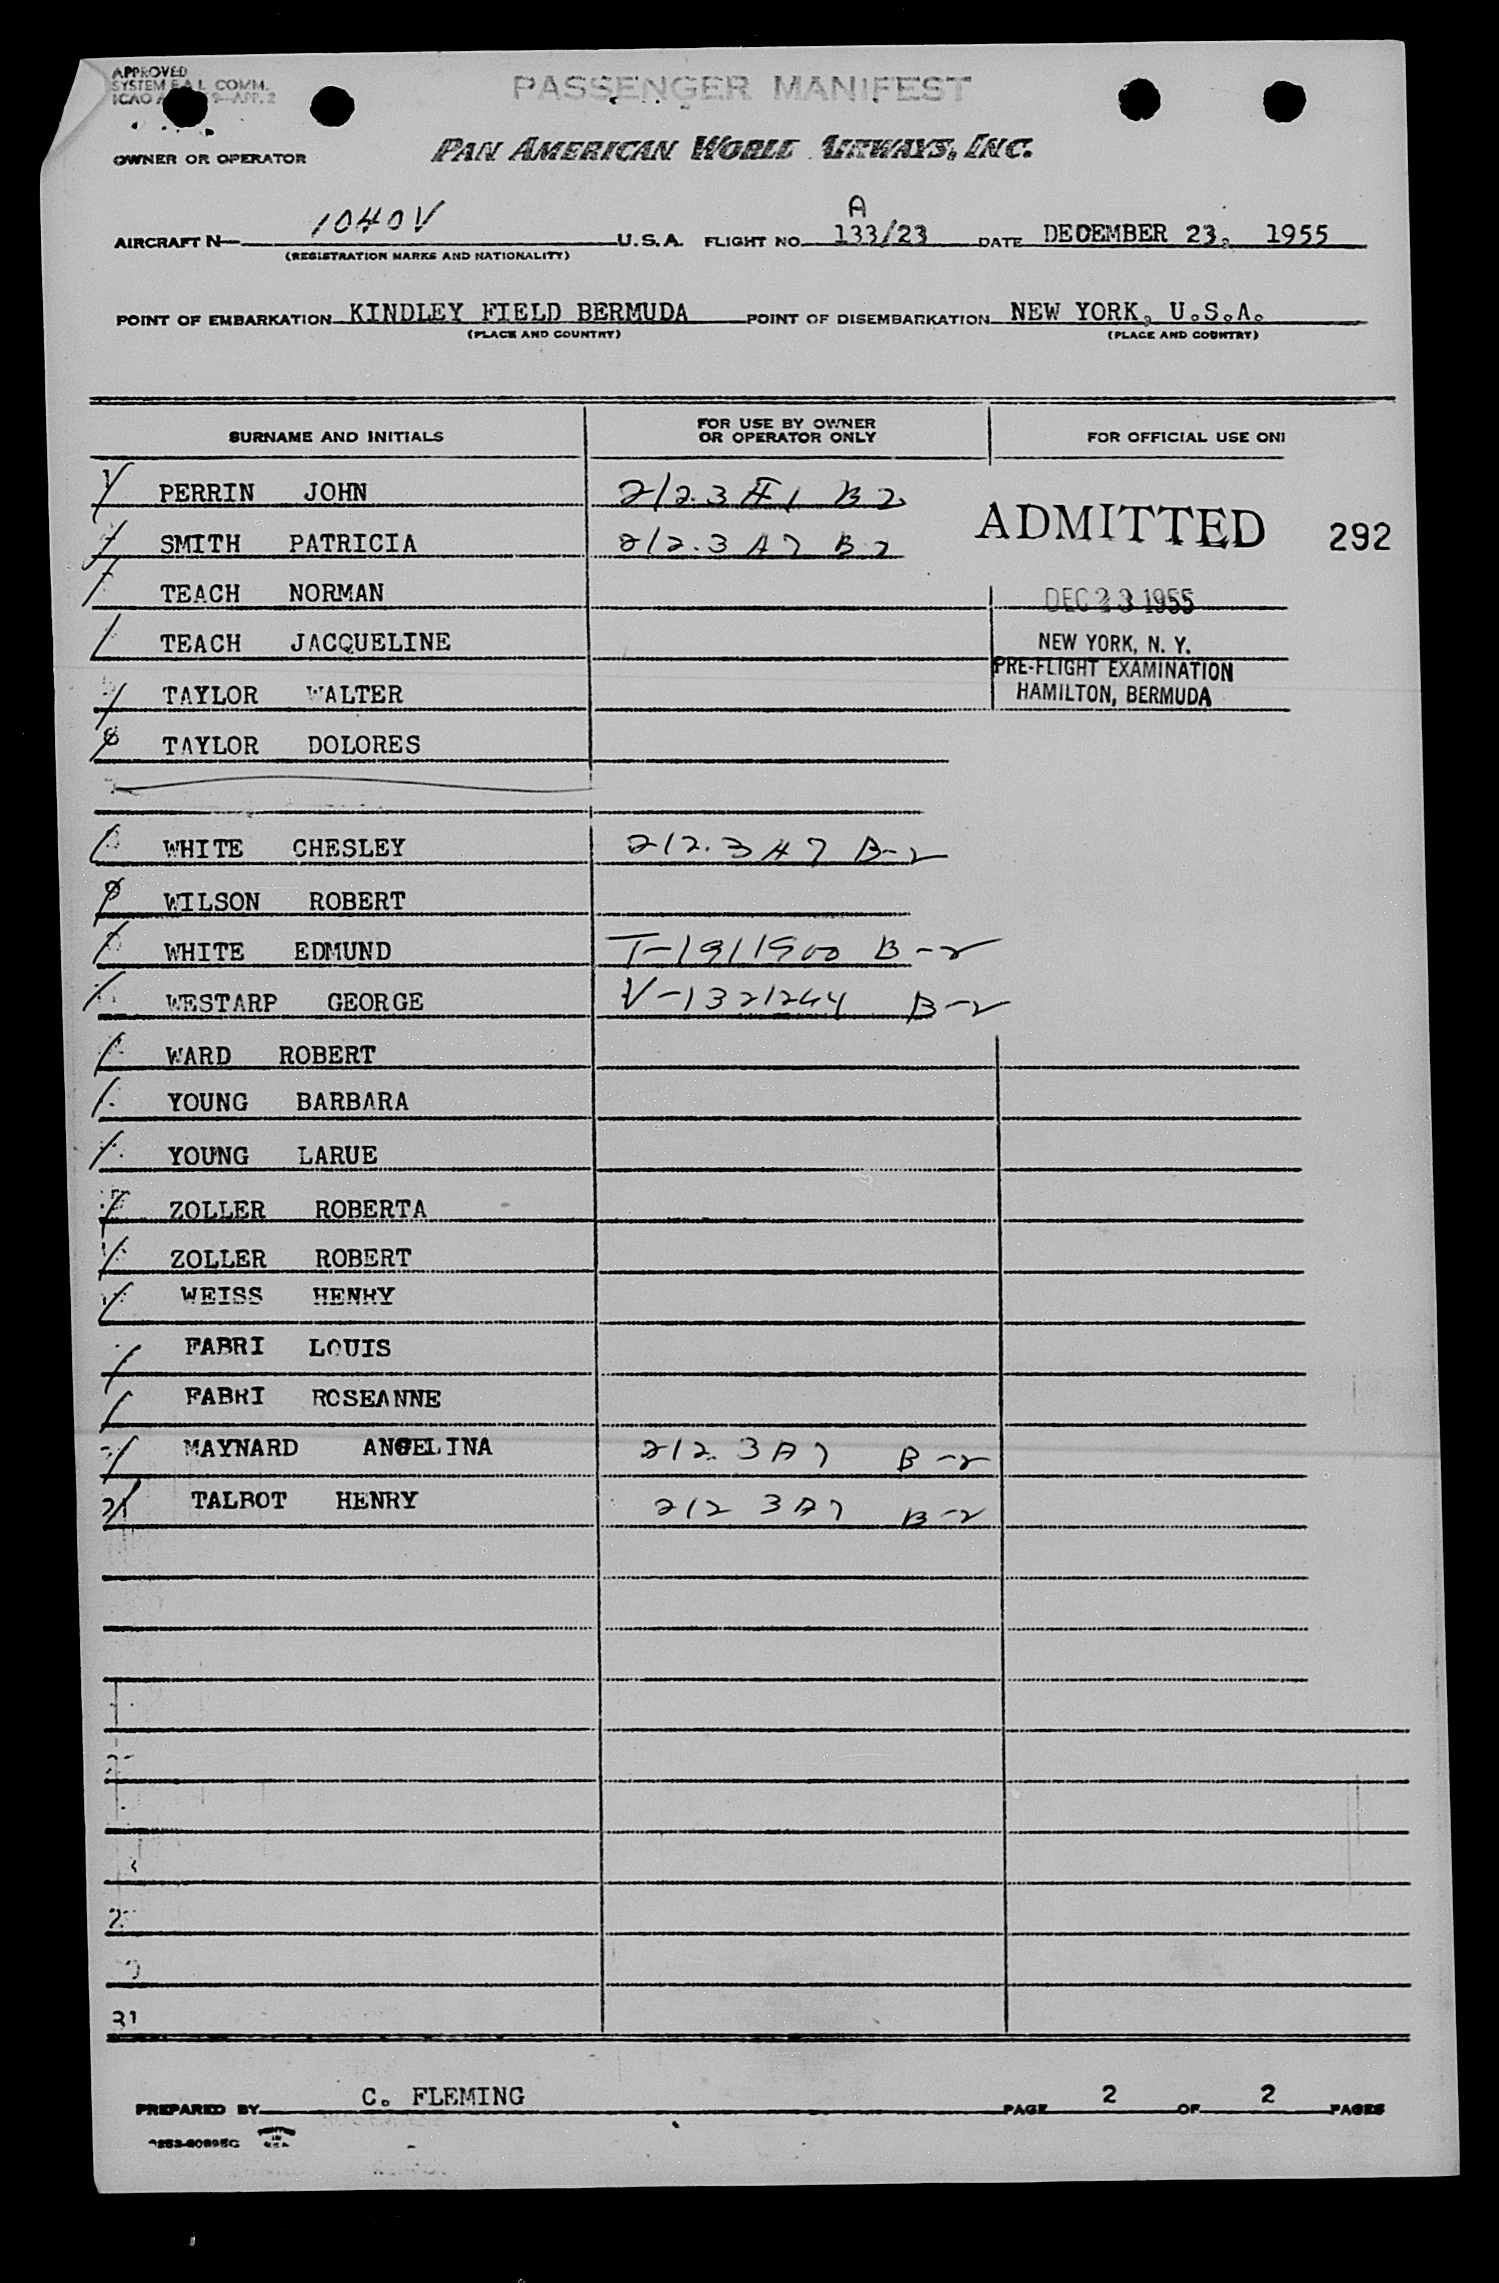 APPROVED
SYSTEM F.A.L. COMM.
ICAO A 9—APP. 2
PASSENGER MANIFEST
OWNER OR OPERATOR PAN AMERICAN WORLD AIRWAYS, INC.
A
AIRCRAFT N— 1040V U.S.A. FLIGHT NO. 133/23 DATE DECEMBER 23, 1955
(REGISTRATION MARKS AND NATIONALITY)
POINT OF EMBARKATION KINDLEY FIELD BERMUDA POINT OF DISEMBARKATION NEW YORK, U.S.A.
(PLACE AND COUNTRY) (PLACE AND COUNTRY)
SURNAME AND INITIALS FOR USE BY OWNER OR OPERATOR ONLY FOR OFFICIAL USE ONL
PERRIN JOHN 212.3 B2
SMITH PATRICIA 212.3 A7 B2
ADMITTED 292
TEACH NORMAN
DEC 23 1955
TEACH JACQUELINE
NEW YORK, N. Y.
PRE-FLIGHT EXAMINATION
TAYLOR WALTER
HAMILTON, BERMUDA
TAYLOR DOLORES
WHITE CHESLEY 212.3 A7 B-2
9 WILSON ROBERT
WHITE EDMUND T-1911500 B-2
WESTARP GEORGE V-1321244 B-2
WARD ROBERT
YOUNG BARBARA
YOUNG LARUE
ZOLLER ROBERTA
ZOLLER ROBERT
WEISS HENRY
FABRI LOUIS
FABRI ROSEANNE
MAYNARD ANGELINA 212 3A7 B-2
21 TALBOT HENRY 212 3A7 B-2
31
PREPARED BY C. FLEMING PAGE 2 OF 2 PAGES
PRINTED IN U.S.A.